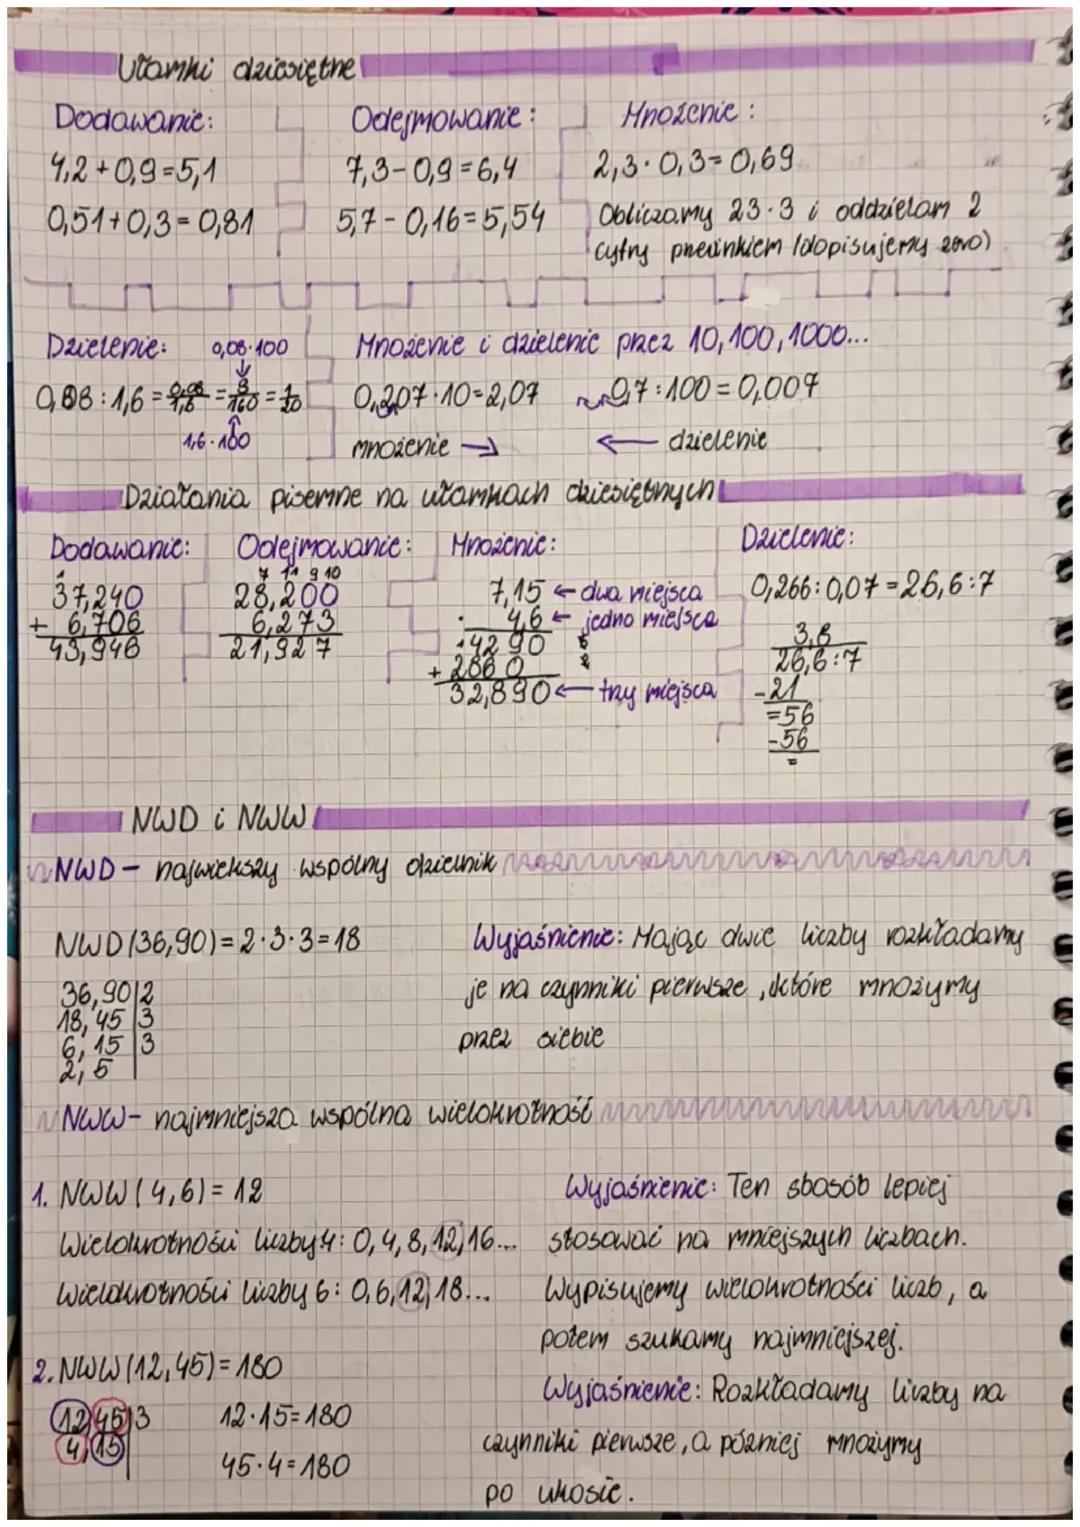 Ułamki dziesiętne
Dodawanie:
4,2 + 0,9 = 5,1
0,51 + 0,3 = 0,81
Odejmowanie:
7,3 - 0,9 = 6,4
5,7 - 0,16 = 5,54
Mnożenie:
2,3 · 0,3 = 0,69
Obliczamy 23·3 i oddzielam 2
cyfry przecinkiem (dopisujemy zero)
Dzielenie:
0,08·100
0,08 : 1,6 = 0,08/1,6 = 8/160 = 1/20
1,6·100
Mnożenie i dzielenie przez 10, 100, 1000...
0,207·10=2,07
0,7:100=0,007
mnożenie →
← dzielenie
Działania pisemne na ułamkach dziesiętnych
Dodawanie:
1
37,240
+ 6,706
43,946
Odejmowanie:
7 11 9 10
28,200
6,273
21,927
Mnożenie:
7,15 ← dwa miejsca
· 4,6 ← jedno miejsce
4290
+ 2860
32,890 ← trzy miejsca
Dzielenie:
0,266 : 0,07 = 26,6 : 7
3,8
26,6:7
-21
=56
-56
=
NWD i NWW
NWD - największy wspólny dzielnik
NWD (36,90) = 2·3·3 = 18
36, 90|2
18, 45|3
6, 15|3
2, 5|
Wyjaśnienie: Mając dwie liczby rozkładamy
je na czynniki pierwsze, które mnożymy
przez siebie
NWW - najmniejsza wspólna wielokrotność
1. NWW (4,6) = 12
Wielokrotności liczby 4: 0, 4, 8, 12, 16...
Wielokrotności liczby 6: 0, 6, 12, 18...
Wyjaśnienie: Ten sbosób lepiej
stosować na mniejszych liczbach.
Wypisujemy wielokrotności liczb, a
potem szukamy najmniejszej.
2. NWW (12, 45) = 180
12, 45|3
4, 15|
12·15=180
45·4=180
Wyjaśnienie: Rozkładamy liczby na
czynniki pierwsze, a później mnożymy
po ukosie.